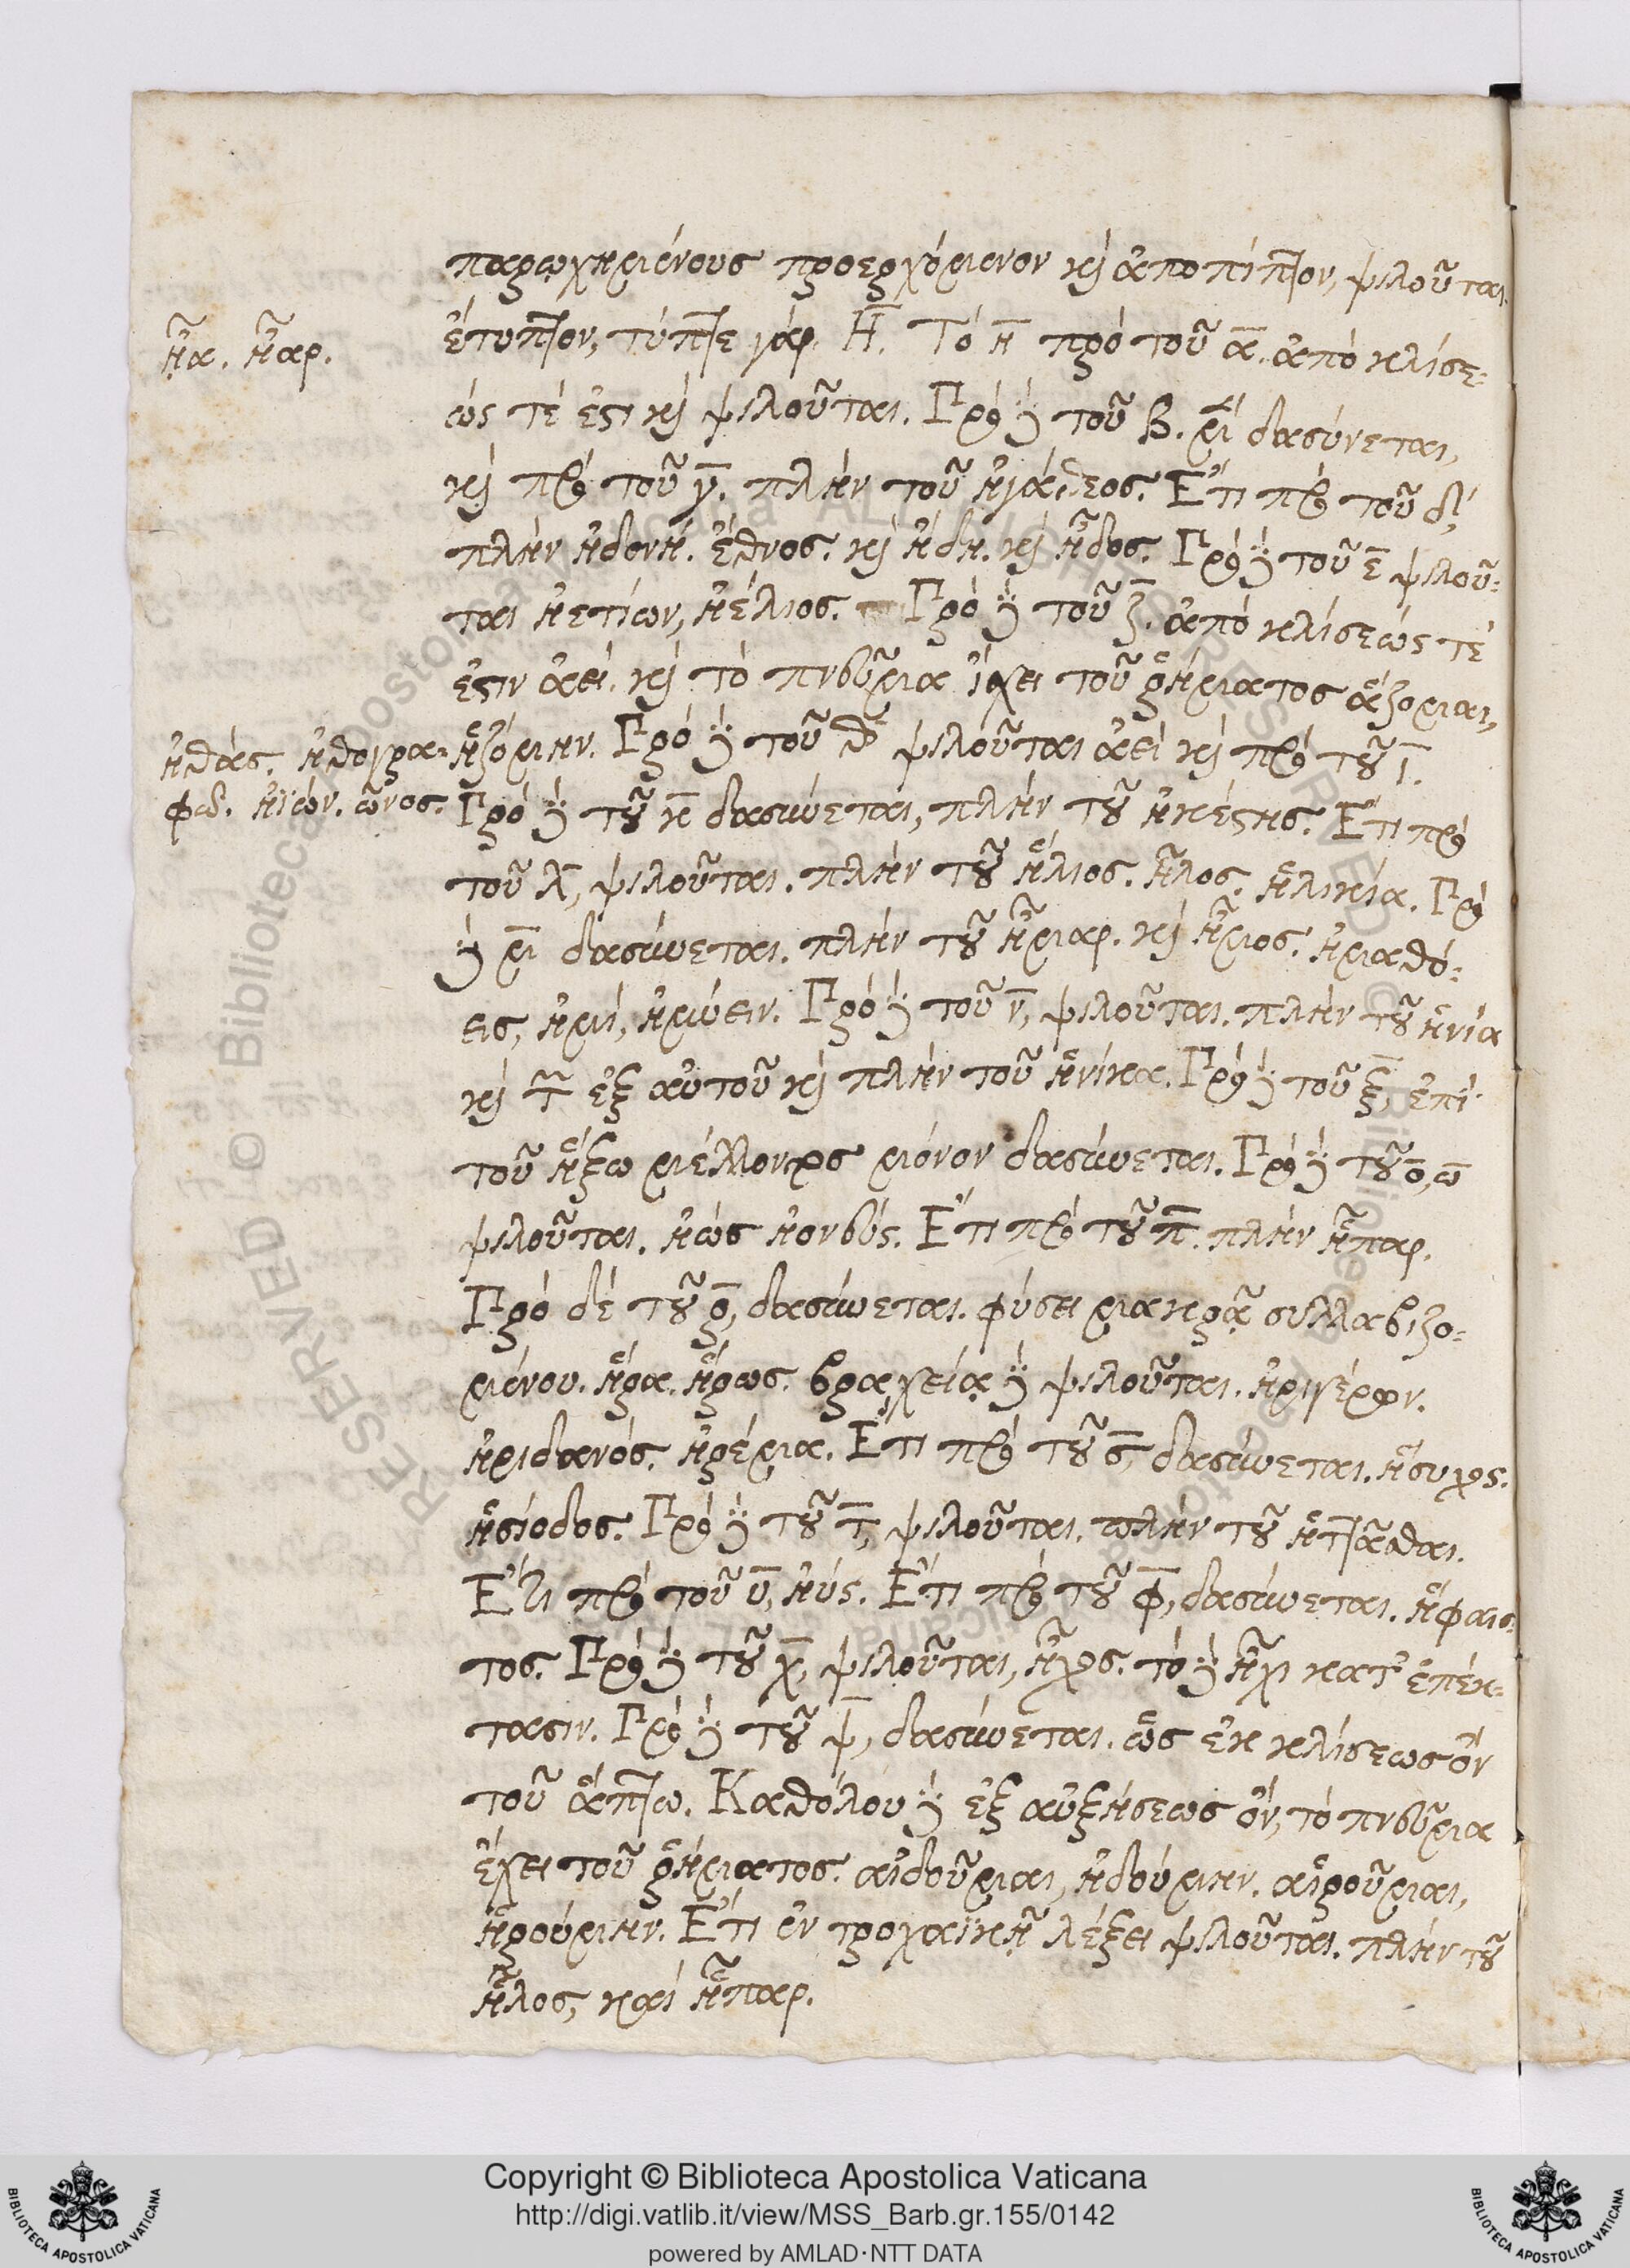 παρῳχημένους προερχόμενον καὶ ἀποπίπτον, ψιλοῦται.
ἔτυπτον, τύπτε γάρ. Η̅. Τὸ η̅ πρὸ τοῦ α̅. ἀπὸ κλίσε-
ώς τέ ἐστι καὶ ψιλοῦται. Πρὸ δὲ τοῦ β. δασύνεται,
καὶ πρὸ τοῦ γ̅. πλὴν τοῦ ἠγάθεος. Ἔτι πρὸ τοῦ δ,
πλὴν ἡδονή. ἔθνος. καὶ ἤδη. καὶ ἦδος. Πρὸ δὲ τοῦ ε̅ ψιλοῦ-
ται ἠετίων, ἠέλιος. Πρὸ δὲ τοῦ ζ. ἀπὸ κλίσεώς τέ
ἐστιν ἀεί. καὶ τὸ πνεῦμα ἔχει τοῦ ῥήματος ἅζομαι,
ἡζόμην. Πρὸ δὲ τοῦ θ̅ ψιλοῦται ἀεὶ καὶ πρὸ τοῦ ι̅.
Πρὸ δὲ τοῦ κ̅ δασύνεται, πλὴν τοῦ ἠκέστης. Ἔτι πρὸ
τοῦ λ̅, ψιλοῦται. πλὴν τοῦ ἥλιος. ἧλος. ἡλικία. Πρὸ
δὲ μ̅ δασύνεται. πλὴν τοῦ ἦμαρ. καὶ ἦμος. ἠμαθό-
εις, ἠμί, ἠμύειν. Πρὸ δὲ τοῦ ν̅, ψιλοῦται. πλὴν τοῦ ἡνία
καὶ τ̅ ἐξ αὐτοῦ καὶ πλὴν τοῦ ἡνίκα. Πρὸ δὲ τοῦ ξ̅, ἐπὶ
τοῦ ἥξω μέλλοντος μόνον δασύνεται. Πρὸ δὲ τοῦ ο̅, ω̅
ψιλοῦται. ἠὼς ἠονεύς. Ἔτι πρὸ τοῦ π̅. πλὴν ἧπαρ.
Πρὸ δὲ τοῦ ρ̅, δασύνεται. φύσει μακρᾷ συλλαβιζο-
μένου. ἥρα. ἥρως. βραχείᾳ δὲ ψιλοῦται. ἠριγέρων.
ἠριδανός. ἠρέμα. Ἔτι πρὸ τοῦ σ̅, δασύνεται. ἥσυχος.
ἡσίοδος. Πρὸ δὲ τοῦ τ̅, ψιλοῦται. πλὴν τοῦ ἡττᾶσθαι.
Ἔτι πρὸ τοῦ υ̅, ἠύς. Ἔτι πρὸ τοῦ φ̅, δασύνεται. ἥφαισ-
τος. Πρὸ δὲ τοῦ χ̅, ψιλοῦται, ἦχος. τὸ δὲ ἧχι κατ' ἐπέκ-
τασιν. Πρὸ δὲ τοῦ ψ̅, δασύνεται. ὡς ἐκ κλίσεως ὂν
τοῦ ἅπτω. Καθόλου δὲ ἐξ αὐξήσεως ὄν, τὸ πνεῦμα
ἔχει τοῦ ῥήματος. αἰδοῦμαι, ἠδούμην. αἱροῦμαι,
ἡρούμην. Ἔτι ἐν τροχαϊκῇ λέξει ψιλοῦται. πλὴν τοῦ
ἧλος, καὶ ἧπαρ.
ἦα. ἦαρ.
ἠθάς. ἠθογρα-
φῶ. ἠϊών. ῶνος.
Copyright © Biblioteca Apostolica Vaticana
http://digi.vatlib.it/view/MSS_Barb.gr.155/0142
powered by AMLAD·NTT DATA